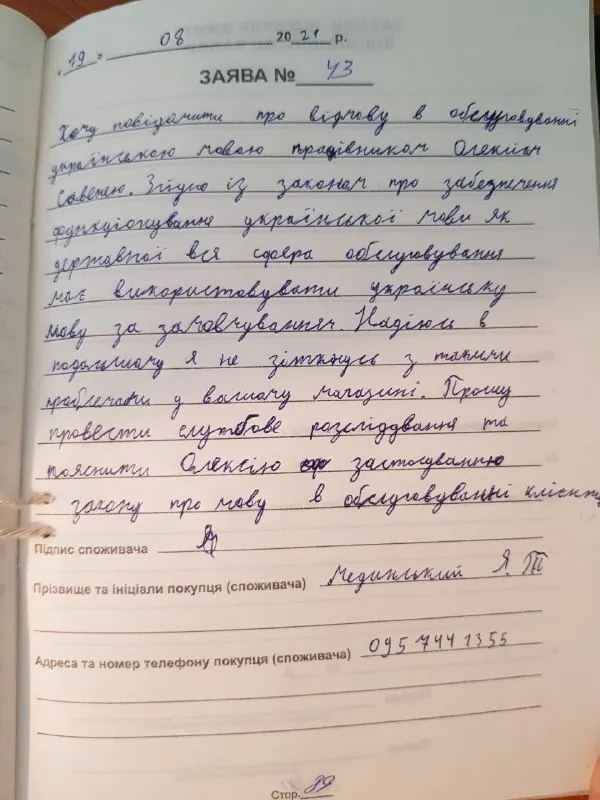 "19" 08 2021 р.
ЗАЯВА № 43
Хочу повідомити про відмову в обслуговуванні
українською мовою працівником Олексієм
Савенею. Згідно із законом про забезпечення
функціонування української мови як
державної вся сфера обслуговування
має використовувати українську
мову за замовчуванням. Надіюсь в
подальшому я не зіткнусь з такими
проблемами у вашому магазині. Прошу
провести службове розслідування та
пояснити Олексію застосування
закону про мову в обслуговуванні клієнтів
Підпис споживача
Прізвище та ініціали покупця (споживача) Мединський Я.
Адреса та номер телефону покупця (споживача) 095 744 1355
Стор. 89